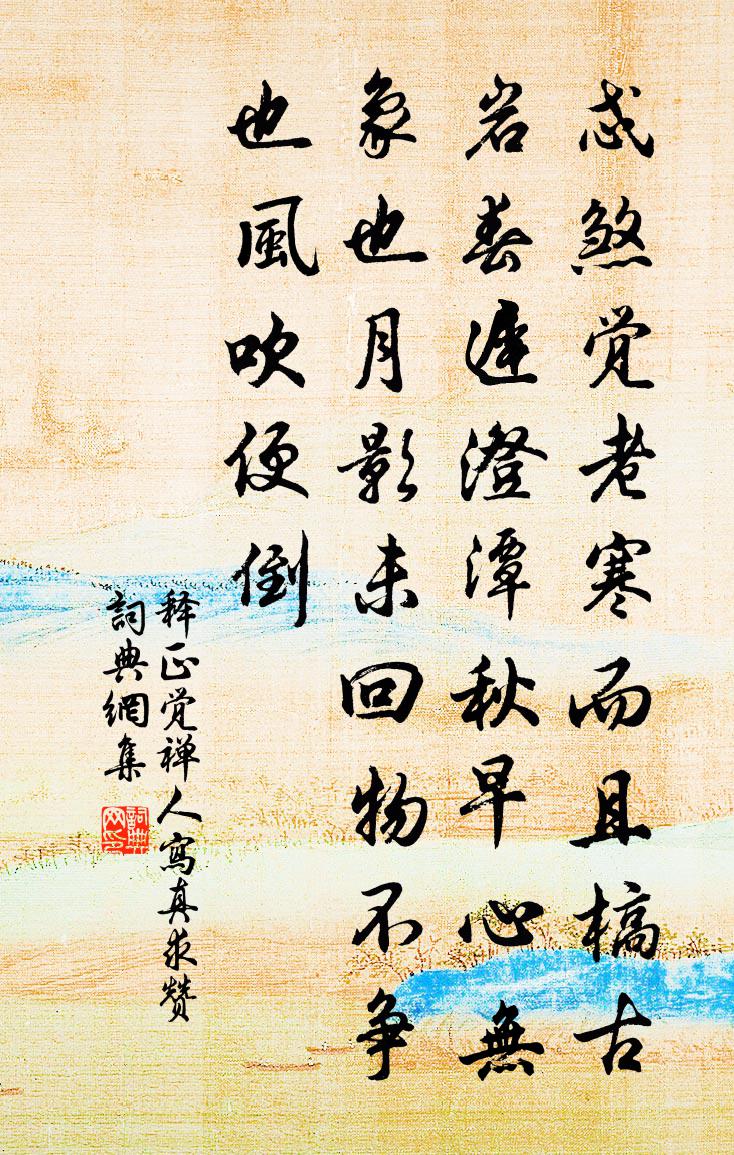 忒煞觉老寒而且槁古
岩春遲澄潭秋早心無
象也月影未回物不争
也風吹便倒
释正觉禅人寫真求赞
詞典網集
詞典网印